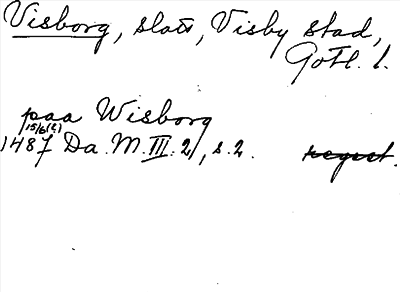 Visborg, slott, Visby stad,
Gotl. l.
paa Wisborg
15/6(?)
1487 Da. M. III: 2, s. 2. regest.